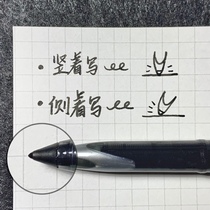 ·竖着写 ee
·侧着写 ee